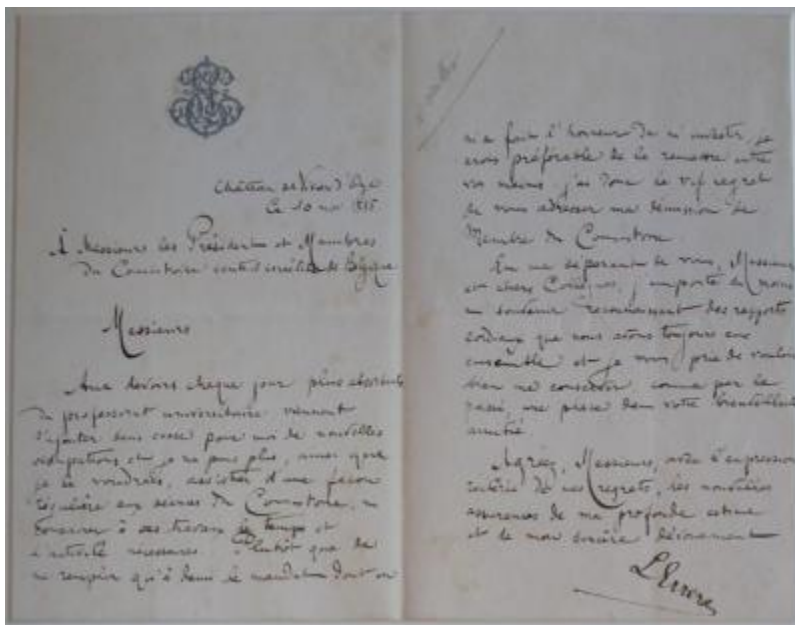 Château de Vieux d'Aze
Ce 10
À Messieurs les Présidents et Membres
du Consistoire central israélite de Belgique
Messieurs
Aux devoirs chaque jour plus absorbants
du professorat universitaire viennent
s'ajouter sans cesse pour moi de nouvelles
occupations et je ne puis plus, aussi que
je le voudrais, assister d'une façon
régulière aux séances du Consistoire, ni
consacrer à ses travaux le temps et
l'activité nécessaires. Plutôt que de
ne remplir qu'à demi le mandat dont on
m'a fait l'honneur de m'investir, je
crois préférable de le remettre entre
vos mains. j'ai donc le vif regret
de vous adresser ma démission de
Membre du Consistoire.
En me séparant de vous, Messieurs
et chers Collègues, j'emporte du moins
un souvenir reconnaissant des rapports
cordiaux que nous avons toujours eus
ensemble et je vous prie de vouloir
bien me conserver, comme par le
passé, une place dans votre bienveillante
amitié.
Agréez, Messieurs, avec l'expression
réitérée de mes regrets, les nouvelles
assurances de ma profonde estime
et de mon sincère dévouement
L Errera